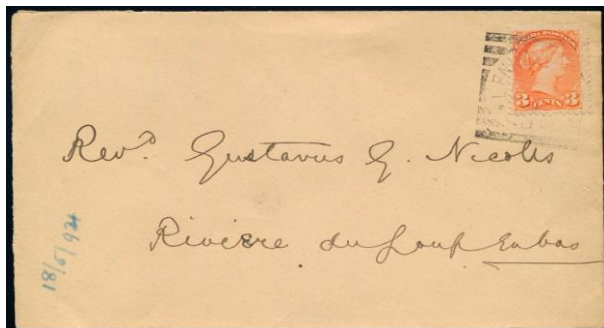 3 CENTS 3
Revd. Gustavus G. Nicolls
Rivière du Loup En bas
18/5/92